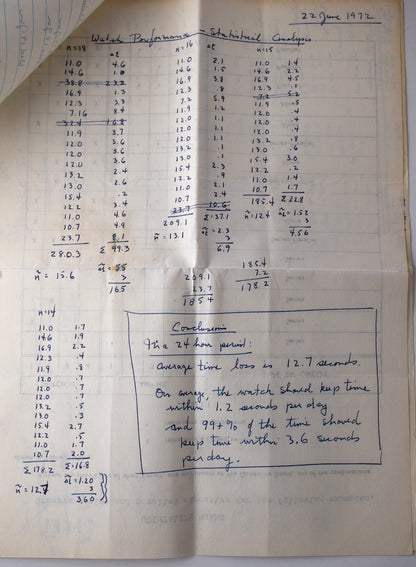 22 June 1972
Watch Performance - Statistical Analysis
n=18 Δt
11.0 4.6
14.6 1.0
38.8 23.2
16.9 1.3
12.3 3.3
7.16 8.4
32.4 16.8
11.9 3.7
12.0 3.6
12.0 3.6
12.0 3.6
13.2 2.4
13.0 2.6
15.4 .2
12.2 3.4
11.0 4.6
10.7 4.9
23.7 8.1
280.3 Σ 99.3
n̄ = 15.6 Δt = 5.5
3
16.5
n=16 Δt
11.0 2.1
14.6 1.5
16.9 3.8
12.3 .8
7.2 5.9
11.9 1.2
12.0 1.1
12.0 1.1
12.0 1.1
13.2 .1
13.0 .1
15.4 2.3
12.2 .9
11.0 2.1
10.7 2.4
23.7 10.6
209.1 Σ=37.1
n̄ = 13.1 Δt = 2.3
3
6.9
n=15
11.0 1.4
14.6 2.2
16.9 4.5
12.3 .1
7.2 5.2
11.9 .5
12.0 .4
12.0 .4
12.0 .4
13.2 .8
13.0 .6
15.4 3.0
12.2 .2
11.0 1.4
10.7 1.7
185.4 Σ 22.8
n̄=12.4 Δt = 1.52
3
4.56
209.1
23.7
185.4
185.4
7.2
178.2
n=14
11.0 1.7
14.6 1.9
16.9 2.2
12.3 .4
11.9 .8
12.0 .7
12.0 .7
12.0 .7
13.2 .5
13.0 .3
15.4 2.7
12.2 .5
11.0 1.7
10.7 2.0
Σ 178.2 Σ=16.8
n̄ = 12.7 Δt = 1.20
3
3.60
Conclusions
In a 24 hour period:
average time loss is 12.7 seconds.
On average, the watch should keep time
within 1.2 seconds per day
and 99+% of the time should
keep time within 3.6 seconds
per day.